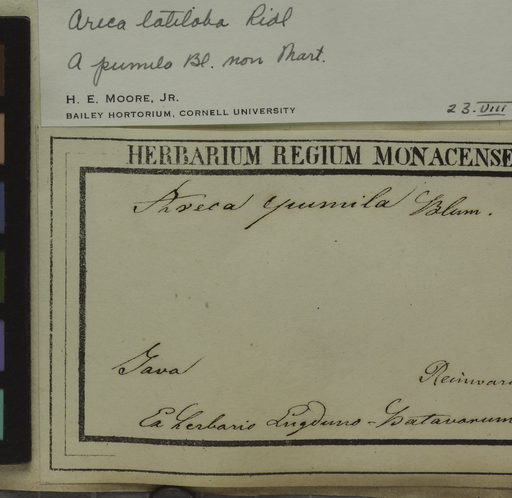 Areca latiloba Ridl
A pumila Bl. non Mart.
H. E. MOORE, JR.
BAILEY HORTORIUM, CORNELL UNIVERSITY
23.VIII
HERBARIUM REGIUM MONACENSE
Areca pumila Blum.
Java
Reinwar
Ex herbario Lugduno-Batavorum